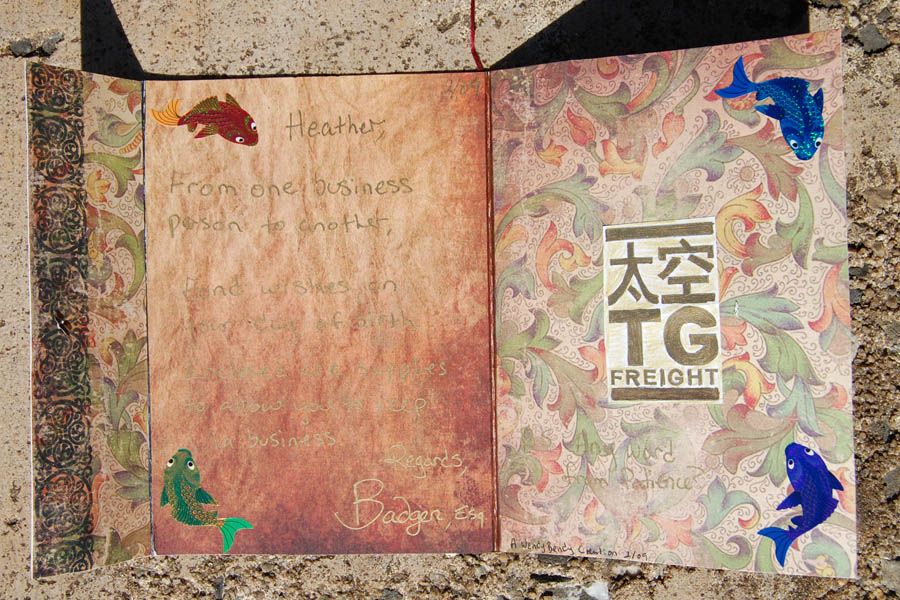 2/09
Heather,
From one business
person to another,
Fond wishes on
your day of birth
to allow you to keep
a business.
Regards,
Badger, Esq
太空
TG
FREIGHT
Any word
from Patience?
A Wendy Bendy Creation 2/09